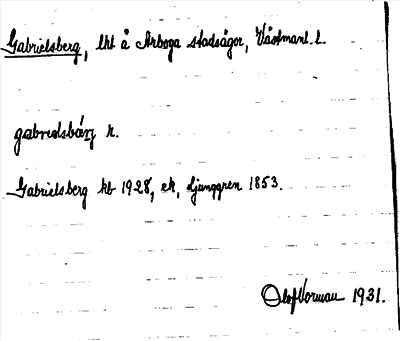 Gabrielsberg, lht å Arboga stadsägor, Västmanl. l.
gabrielsbärj k.
Gabrielsberg kb 1928, ek, Ljunggren 1853.
Olof Vorman 1931.